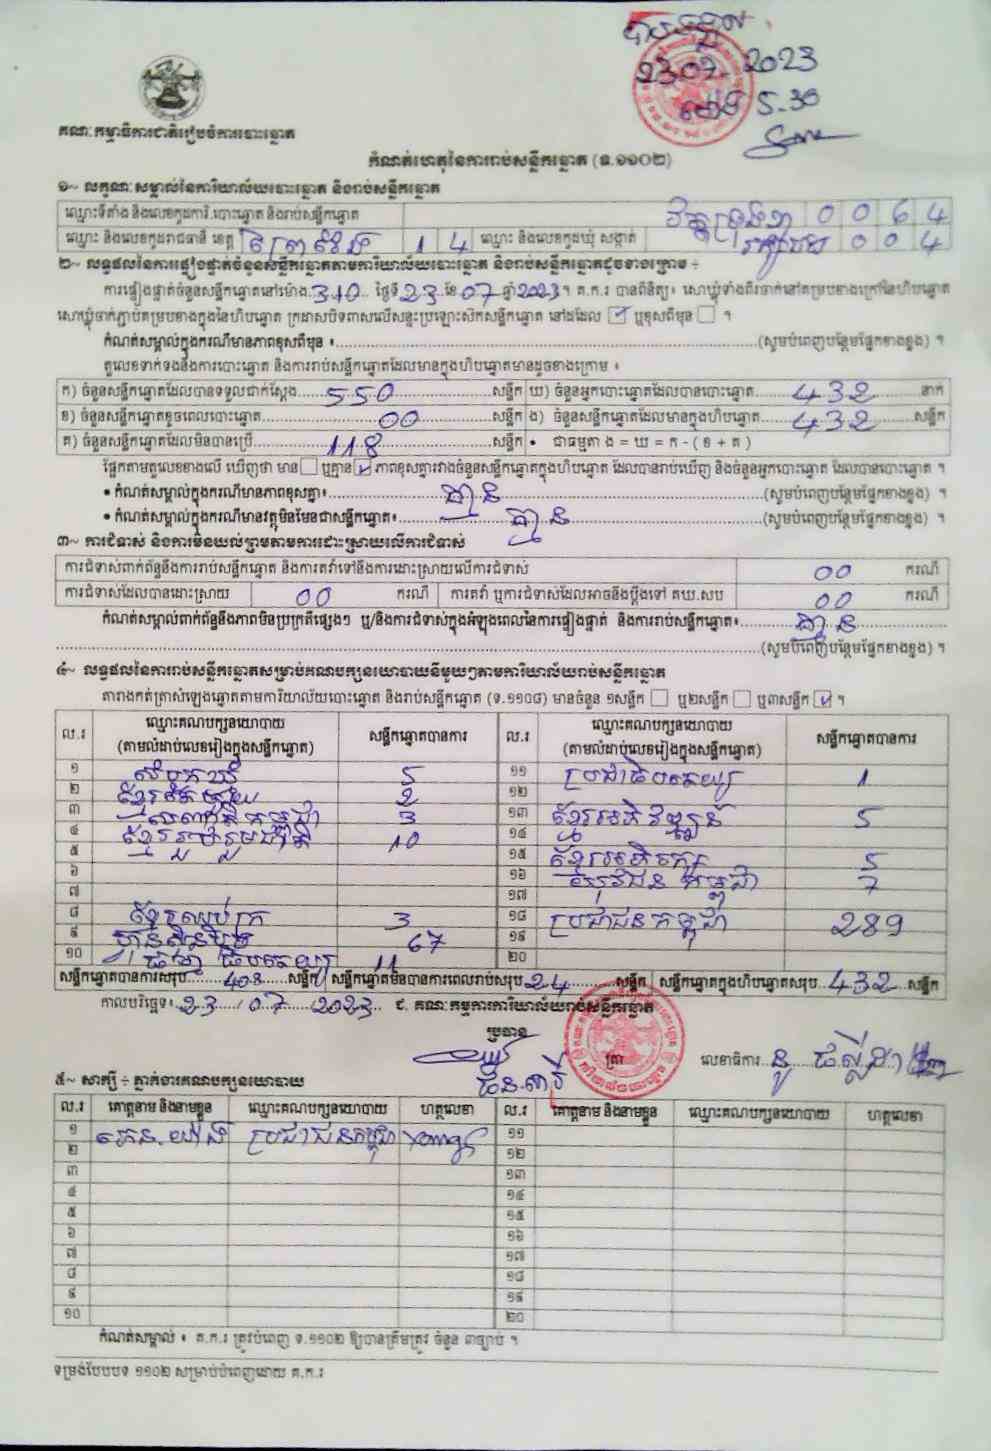 បានទទួល
23.07.2023
ម៉ោង 5.30
គណៈកម្មាធិការជាតិរៀបចំការបោះឆ្នោត
កំណត់ហេតុនៃការរាប់សន្លឹកឆ្នោត (ទ.១១០២)
១~ លក្ខណៈសម្គាល់នៃការិយាល័យបោះឆ្នោត និងរាប់សន្លឹកឆ្នោត
ឈ្មោះទីតាំង និងលេខកូដការិ.បោះឆ្នោត និងរាប់សន្លឹកឆ្នោត 0 0 6 4
ឈ្មោះ និងលេខកូដរាជធានី ខេត្ត ព្រៃវែង 1 4 ឈ្មោះ និងលេខកូដឃុំ សង្កាត់ 0 0 4
២~ លទ្ធផលនៃការផ្ទៀងផ្ទាត់ចំនួនសន្លឹកឆ្នោតតាមការិយាល័យបោះឆ្នោត និងរាប់សន្លឹកឆ្នោតដូចខាងក្រោម ÷
ការផ្ទៀងផ្ទាត់ចំនួនសន្លឹកឆ្នោតនៅម៉ោង..310.. ថ្ងៃទី23.ខែ07.ឆ្នាំ2023។ គ.ក.រ បានពិនិត្យ៖ សោឃ្លុំទាំងពីរចាក់នៅគម្របខាងក្រៅនៃហិបឆ្នោត
សោឃ្លុំចាក់ភ្ជាប់គម្របខាងក្នុងនៃហិបឆ្នោត ក្រដាសបិទពាសលើសន្ទះប្រឡោះសិកសន្លឹកឆ្នោត នៅដដែល ☑ ឬខុសពីមុន ☐ ។
កំណត់សម្គាល់ក្នុងករណីមានភាពខុសពីមុន ៖ (សូមបំពេញបន្ថែមផ្នែកខាងខ្នង) ។
តួលេខទាក់ទងនឹងការបោះឆ្នោត និងការរាប់សន្លឹកឆ្នោតដែលមានក្នុងហិបឆ្នោតមានដូចខាងក្រោម ៖
ក) ចំនួនសន្លឹកឆ្នោតដែលបានទទួលជាក់ស្ដែង 550 សន្លឹក ឃ) ចំនួនអ្នកបោះឆ្នោតដែលបានបោះឆ្នោត 432 នាក់
ខ) ចំនួនសន្លឹកឆ្នោតខូចពេលបោះឆ្នោត 00 សន្លឹក ង) ចំនួនសន្លឹកឆ្នោតដែលមានក្នុងហិបឆ្នោត 432 សន្លឹក
គ) ចំនួនសន្លឹកឆ្នោតដែលមិនបានប្រើ 118 សន្លឹក • ជាធម្មតា ង = ឃ = ក - ( ខ + គ )
ផ្អែកតាមតួលេខខាងលើ ឃើញថា មាន ☐ ឬគ្មាន ☑ ភាពខុសគ្នារវាងចំនួនសន្លឹកឆ្នោតក្នុងហិបឆ្នោត ដែលបានរាប់ឃើញ និងចំនួនអ្នកបោះឆ្នោត ដែលបានបោះឆ្នោត ។
• កំណត់សម្គាល់ក្នុងករណីមានភាពខុសគ្នា៖ គ្មាន (សូមបំពេញបន្ថែមផ្នែកខាងខ្នង) ។
• កំណត់សម្គាល់ក្នុងករណីមានវត្ថុមិនមែនជាសន្លឹកឆ្នោត៖ គ្មាន (សូមបំពេញបន្ថែមផ្នែកខាងខ្នង) ។
៣~ ការជំទាស់ និងការមិនយល់ព្រមតាមការដោះស្រាយលើការជំទាស់
ការជំទាស់ពាក់ព័ន្ធនឹងការរាប់សន្លឹកឆ្នោត និងការតវ៉ាទៅនឹងការដោះស្រាយលើការជំទាស់ 00 ករណី
ការជំទាស់ដែលបានដោះស្រាយ 00 ករណី ការតវ៉ា ឬការជំទាស់ដែលអាចនឹងប្ដឹងទៅ គឃ.សប 00 ករណី
កំណត់សម្គាល់ពាក់ព័ន្ធនឹងភាពមិនប្រក្រតីផ្សេងៗ ឬ/និងការជំទាស់ក្នុងអំឡុងពេលនៃការផ្ទៀងផ្ទាត់ និងការរាប់សន្លឹកឆ្នោត៖ គ្មាន
(សូមបំពេញបន្ថែមផ្នែកខាងខ្នង) ។
៤~ លទ្ធផលនៃការរាប់សន្លឹកឆ្នោតសម្រាប់គណបក្សនយោបាយនីមួយៗតាមការិយាល័យរាប់សន្លឹកឆ្នោត
តារាងកត់ត្រាសំឡេងឆ្នោតតាមការិយាល័យបោះឆ្នោត និងរាប់សន្លឹកឆ្នោត (ទ.១១០៨) មានចំនួន ១សន្លឹក ☐ ឬ២សន្លឹក ☐ ឬ៣សន្លឹក ☑ ។
ល.រ ឈ្មោះគណបក្សនយោបាយ (តាមលំដាប់លេខរៀងក្នុងសន្លឹកឆ្នោត) សន្លឹកឆ្នោតបានការ ល.រ ឈ្មោះគណបក្សនយោបាយ (តាមលំដាប់លេខរៀងក្នុងសន្លឹកឆ្នោត) សន្លឹកឆ្នោតបានការ
១ 5 ១១ ប្រជាធិបតេយ្យ 1
២ 2 ១២
៣ 3 ១៣ ខ្មែរអភិវឌ្ឍន៍ 5
៤ ខ្មែររួបរួមជាតិ 10 ១៤
៥ ១៥ 5
៦ ១៦ 7
៧ ១៧
៨ ខ្មែរឈប់ក្រ 3 ១៨ ប្រជាជនកម្ពុជា 289
៩ ហ្វ៊ុនស៊ិនប៉ិច 67 ១៩
១០ 11 ២០
សន្លឹកឆ្នោតបានការសរុប 408 សន្លឹក សន្លឹកឆ្នោតមិនបានការពេលរាប់សរុប 24 សន្លឹក សន្លឹកឆ្នោតក្នុងហិបឆ្នោតសរុប 432 សន្លឹក
កាលបរិច្ឆេទ៖ 23 / 07 / 2023 ជ. គណៈកម្មការការិយាល័យរាប់សន្លឹកឆ្នោត
ប្រធាន
ត្រា លេខាធិការ
៥~ សាក្សី ÷ ភ្នាក់ងារគណបក្សនយោបាយ
ល.រ គោត្តនាម និងនាមខ្លួន ឈ្មោះគណបក្សនយោបាយ ហត្ថលេខា ល.រ គោត្តនាម និងនាមខ្លួន ឈ្មោះគណបក្សនយោបាយ ហត្ថលេខា
១ ប្រជាជនកម្ពុជា ១១
២ ១២
៣ ១៣
៤ ១៤
៥ ១៥
៦ ១៦
៧ ១៧
៨ ១៨
៩ ១៩
១០ ២០
កំណត់សម្គាល់ ៖ គ.ក.រ ត្រូវបំពេញ ទ.១១០២ ឱ្យបានត្រឹមត្រូវ ចំនួន ៣ច្បាប់ ។
ទម្រង់បែបបទ ១១០២ សម្រាប់បំពេញដោយ គ.ក.រ